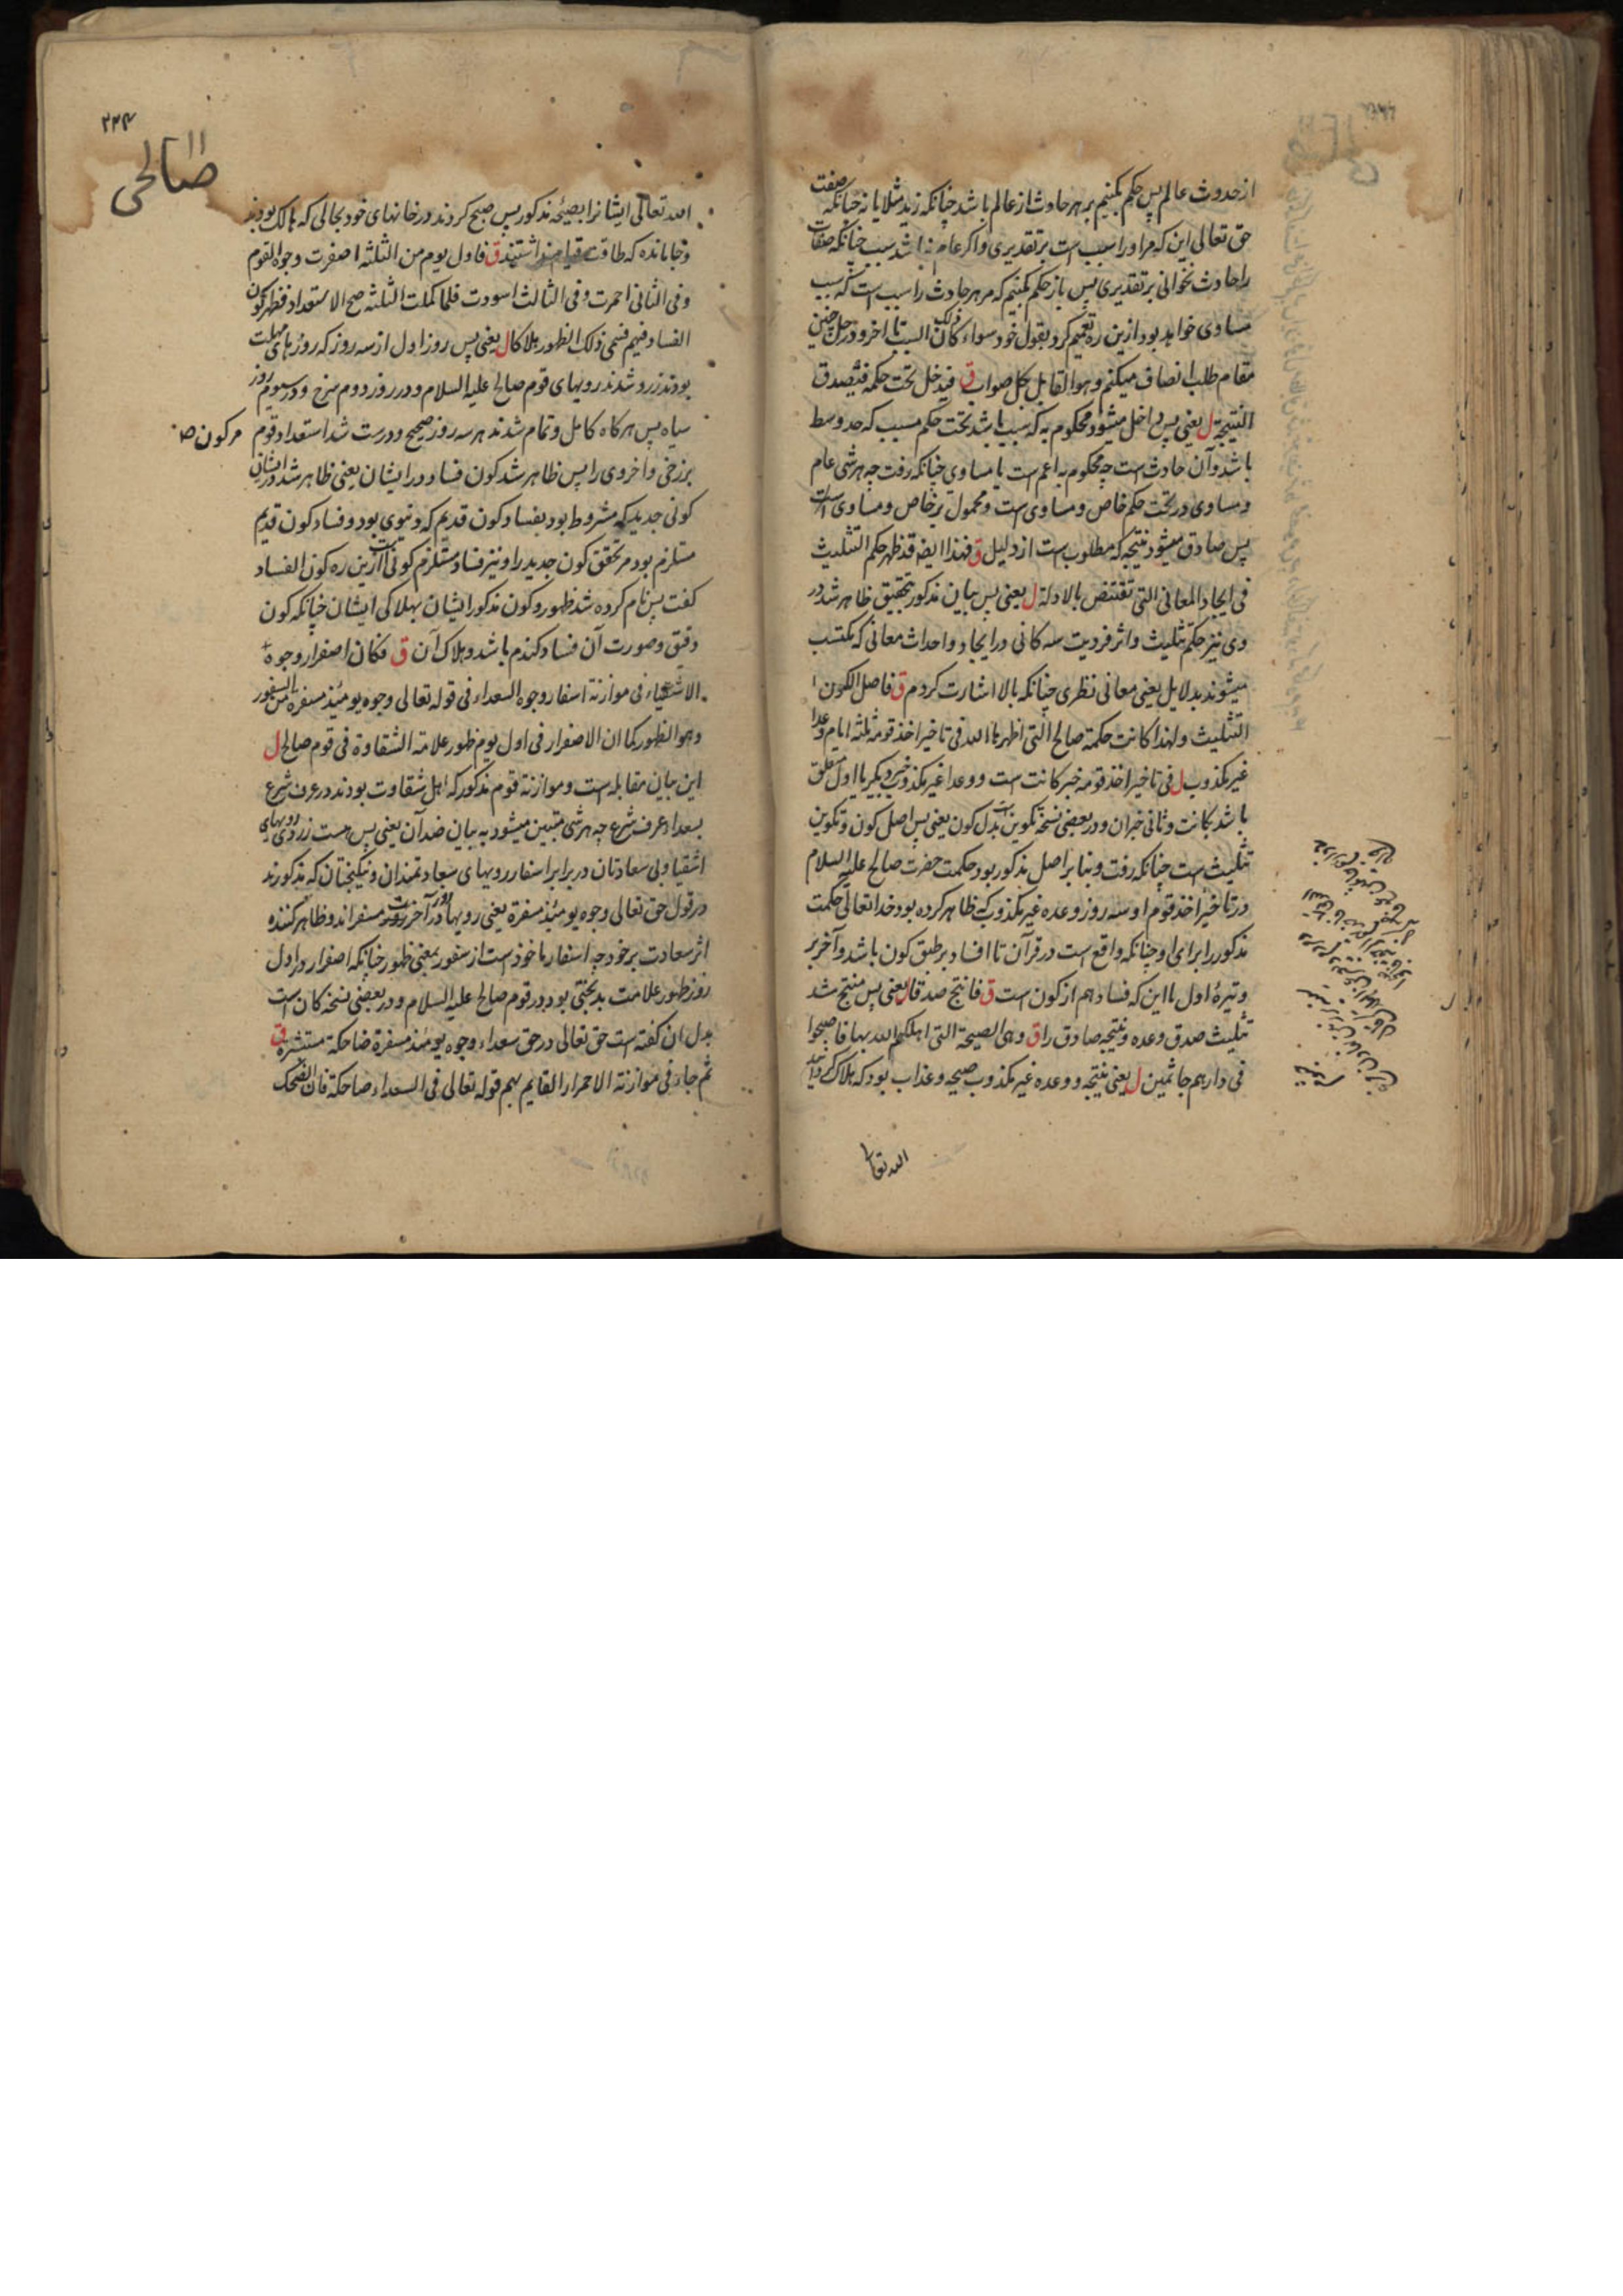 از حدوث عالم پس حکم بکنیم بر هر حادث از عالم باشد چنانکه زید مثلا یا نه چنانکه صفت
حق تعالی این که مر او را سبب است بر تقدیری و اگر عام نباشد سبب چنانکه صفات
را حادث نخوانی بر تقدیری پس باز حکم بکنیم که مر هر حادث را سبب است که سبب
مساوی خواهد بود ازین ره تعمیم کرد بقول خود سواء کان ذلک السبب تا آخر و در حل چنین
مقام طلب انصاف میکنم و هو القابل بکل صواب ق فیدخل تحت حکمه فتصدق
النتیجة ل یعنی پس داخل میشود محکوم به که سبب باشد تحت حکم مسبب که حد وسط
باشد و آن حادث است چه محکوم به اعم است یا مساوی چنانکه رفت چه هر شی عام
و مساوی در تحت حکم خاص و مساوی است و محمول بر خاص و مساوی است
پس صادق میشود نتیجه که مطلوب است از دلیل ق فهذا ایضا قد ظهر حکم التثلیث
فی ایجاد المعانی التی تقتنص بالادلة ل یعنی پس ببیان مذکور بتحقیق ظاهر شد در
وی نیز حکم تثلیث و اثر فردیت سه کانی در ایجاد و احداث معانی که مکتسب
میشوند بدلایل یعنی معانی نظری چنانکه بالا اشارت کردم ق فاصل الکون
التثلیث ولهذا کانت حکمة صالح التی اظهرها الله فی تاخیر اخذ قومه ثلثه ایام وعدا
غیر مکذوب ل فی تاخیر اخذ قومه خبر کانت است و وعدا غیر مکذوب خبر دیگر یا اول متعلق
باشد بکانت و ثانی خبر آن و در بعضی نسخه تکوین است بدل کون یعنی پس اصل کون و تکوین
تثلیث است چنانکه رفت و بنا بر اصل مذکور بود حکمت حضرت صالح علیه السلام
در تاخیر اخذ قوم او سه روز وعده غیر مکذوب که ظاهر کرده بود خدا تعالی حکمت
مذکور را برای او چنانکه واقع است در قرآن تا افساد بر طبق کون باشد و آخر بر
وتیرۀ اول با این که فساد هم از کون است ق فانتج صدقا ل یعنی پس منتج شد
تثلیث صدق وعده و نتیجه صادق را ق وهی الصیحة التی اهلکهم الله بها فاصبحوا
فی دارهم جاثمین ل یعنی نتیجه و وعده غیر مکذوب صیحه و عذاب بود که هلاک گردانید
الله تعالی
۲۲۴
صالحی
الله تعالی ایشانرا بصیحه مذکور پس صبح کردند در خانهای خود بحالی که هالک بودند
و جا مانده که طاقت قیام نداشتند ق فاول یوم من الثلثه اصفرت وجوه القوم
وفی الثانی احمرت وفی الثالث اسودت فلما کملت الثلثه صح الاستعداد فظهر کون
الفساد فیهم فسمی ذلک الظهور هلاکا ل یعنی پس روز اول از سه روز که روزهای مهلت
بودند زرد شدند رویهای قوم صالح علیه السلام و در روز دوم سرخ و در سیوم روز
سیاه پس هرکاه کامل و تمام شدند هر سه روز صحیح و درست شد استعداد قوم مر کون ص
برزخی و اخروی را پس ظاهر شد کون فساد در ایشان یعنی ظاهر شد در ایشان
کونی جدید که مشروط بود بفساد کون قدیم که دنیوی بود و فساد کون قدیم
مستلزم بود مر تحقق کون جدید را و نیز فساد مستلزم کونی است ازین ره کون الفساد
کفت پس نام کرده شد ظهور و کون مذکور ایشان بهلاکی ایشان چنانکه کون
دقیق و صورت آن فساد کندم باشد و هلاک آن ق فکان اصفرار وجوه
الاشقیاء فی موازنة اسفار وجوه السعداء فی قوله تعالی وجوه یومئذ مسفرة من السفور
وهو الظهور کما ان الاصفرار فی اول یوم ظهور علامة الشقاوة فی قوم صالح ل
این بیان مقابله است و موازنه قوم مذکور که اهل شقاوت بودند در عرف شرع
بسعداء عرف شرع چه هر شی متبین میشود به بیان ضد آن یعنی پس هست زردی رویهای
اشقیا و بی سعادتان در برابر اسفار رویهای سعادتمندان و نیکبختان که مذکورند
در قول حق تعالی وجوه یومئذ مسفرة یعنی رویها در روز آخرت مسفراند و ظاهر کننده
اثر سعادت بر خود چه اسفار ماخوذ است از سفور بمعنی ظهور چنانکه اصفرار در اول
روز ظهور علامت بدبختی بود در قوم صالح علیه السلام و در بعضی نسخه کان است
بدل ان کفته است حق تعالی در حق سعداء وجوه یومئذ مسفرة ضاحکة مستبشرة ق
ثم جاء فی موازنة الاحمرار القایم بهم قوله تعالی فی السعداء ضاحکة فان الضحک